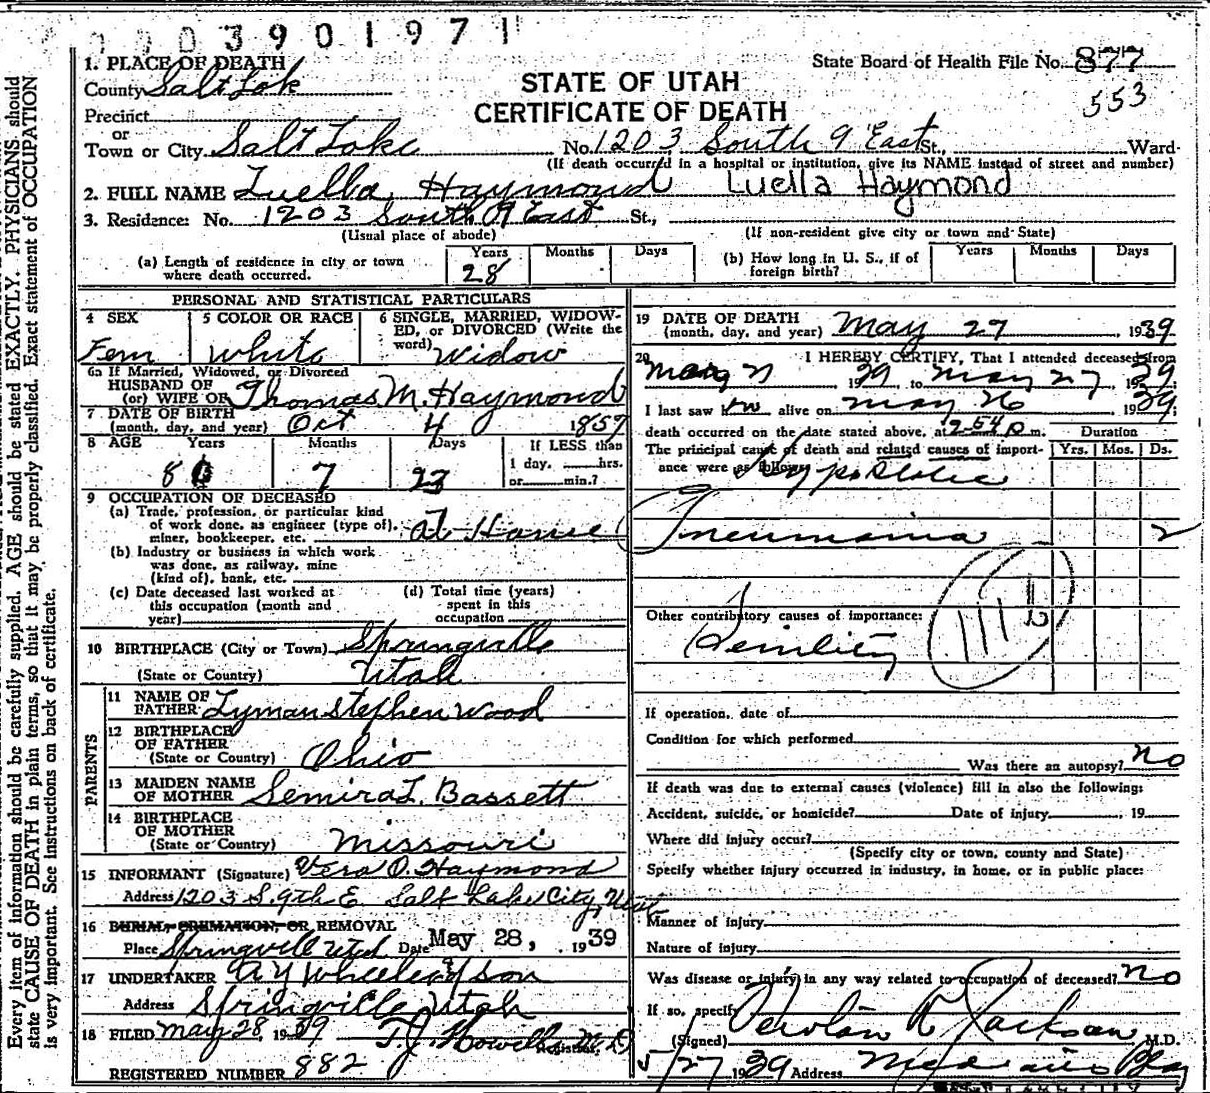 0003901971
1. PLACE OF DEATH
State Board of Health File No. 877
County Salt Lake
STATE OF UTAH
553
Precinct
CERTIFICATE OF DEATH
or
Town or City Salt Lake No. 1203 South 9 East St., Ward
(If death occurred in a hospital or institution, give its NAME instead of street and number)
2. FULL NAME Luella Haymond Luella Haymond
3. Residence: No. 1203 South 9 East St.,
(Usual place of abode) (If non-resident give city or town and State)
(a) Length of residence in city or town where death occurred. Years 28 Months Days
(b) How long in U. S., if of foreign birth? Years Months Days
PERSONAL AND STATISTICAL PARTICULARS
4 SEX Fem
5 COLOR OR RACE White
6 SINGLE, MARRIED, WIDOWED, or DIVORCED (Write the word) Widow
6a If Married, Widowed, or Divorced
HUSBAND OF
(or) WIFE OF Thomas M. Haymond
7 DATE OF BIRTH
(month, day, and year) Oct 4 1857
8 AGE Years Months Days If LESS than
8 7 23 1 day, hrs.
or min.?
9 OCCUPATION OF DECEASED
(a) Trade, profession, or particular kind
of work done, as engineer (type of),
miner, bookkeeper, etc. at Home
(b) Industry or business in which work
was done, as railway, mine
(kind of), bank, etc.
(c) Date deceased last worked at
this occupation (month and
year)
(d) Total time (years)
spent in this
occupation
10 BIRTHPLACE (City or Town) Springville
(State or Country) Utah
PARENTS
11 NAME OF
FATHER Lyman Stephen Wood
12 BIRTHPLACE
OF FATHER
(State or Country) Ohio
13 MAIDEN NAME
OF MOTHER Semira L. Bassett
14 BIRTHPLACE
OF MOTHER
(State or Country) Missouri
15 INFORMANT (Signature) Vera O. Haymond
Address 1203 S. 9th E. Salt Lake City, Utah
16 BURIAL, CREMATION, OR REMOVAL
Place Springville Utah Date May 28, 1939
17 UNDERTAKER A Y Wheeler & son
Address Springville, Utah
18 FILED May 28, 1939 T. J. Howells M D
Registrar.
REGISTERED NUMBER 882
19 DATE OF DEATH
(month, day, and year) May 27 1939
20 I HEREBY CERTIFY, That I attended deceased from
1939 to May 27, 1939
I last saw alive on May 26 1939
death occurred on the date stated above, at 2-54 p m. Duration
The principal cause of death and related causes of importance were as follows: Yrs. Mos. Ds.
Hypostatic
Pneumonia 2
Other contributory causes of importance:
Senility
111 b
If operation, date of
Condition for which performed
Was there an autopsy? no
If death was due to external causes (violence) fill in also the following:
Accident, suicide, or homicide? Date of injury , 19
Where did injury occur?
(Specify city or town, county and State)
Specify whether injury occurred in industry, in home, or in public place:
Manner of injury
Nature of injury
Was disease or injury in any way related to occupation of deceased? no
If so, specify
(Signed) Jackson M.D.
5/27 1939 Address
Every item of information should be carefully supplied. AGE should be stated EXACTLY. PHYSICIANS should
state CAUSE OF DEATH in plain terms, so that it may be properly classified. Exact statement of OCCUPATION
is very important. See instructions on back of certificate.